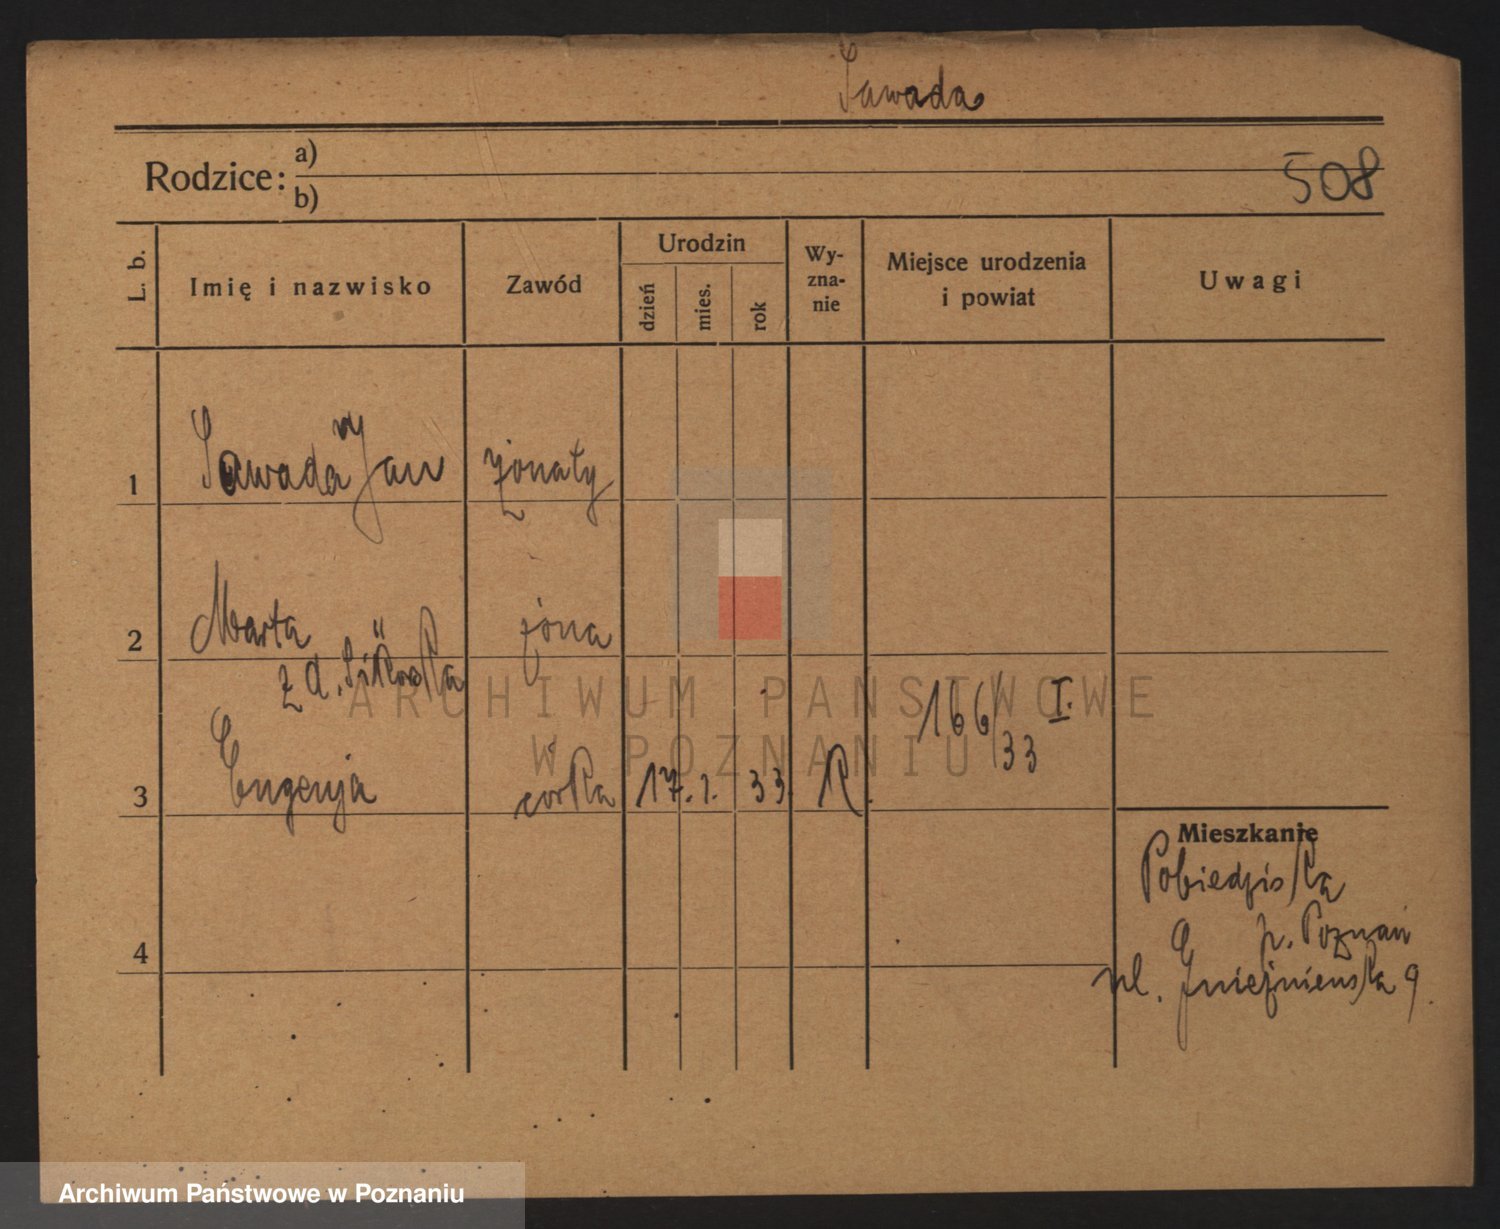 Sawada
Rodzice: a)
b)
508
L. b.
Imię i nazwisko
Zawód
Urodzin
dzień
mies.
rok
Wy-
zna-
nie
Miejsce urodzenia
i powiat
Uwagi
1 Sawada Jan żonaty
2 Marta żona
z d. Sikorska
166/33 I.
3 Eugenja córka 17. 1. 33. R.
Mieszkanie
Pobiedziska
p. Poznań
ul. Gnieźnieńska 9.
4
ARCHIWUM PAŃSTWOWE
W POZNANIU
Archiwum Państwowe w Poznaniu